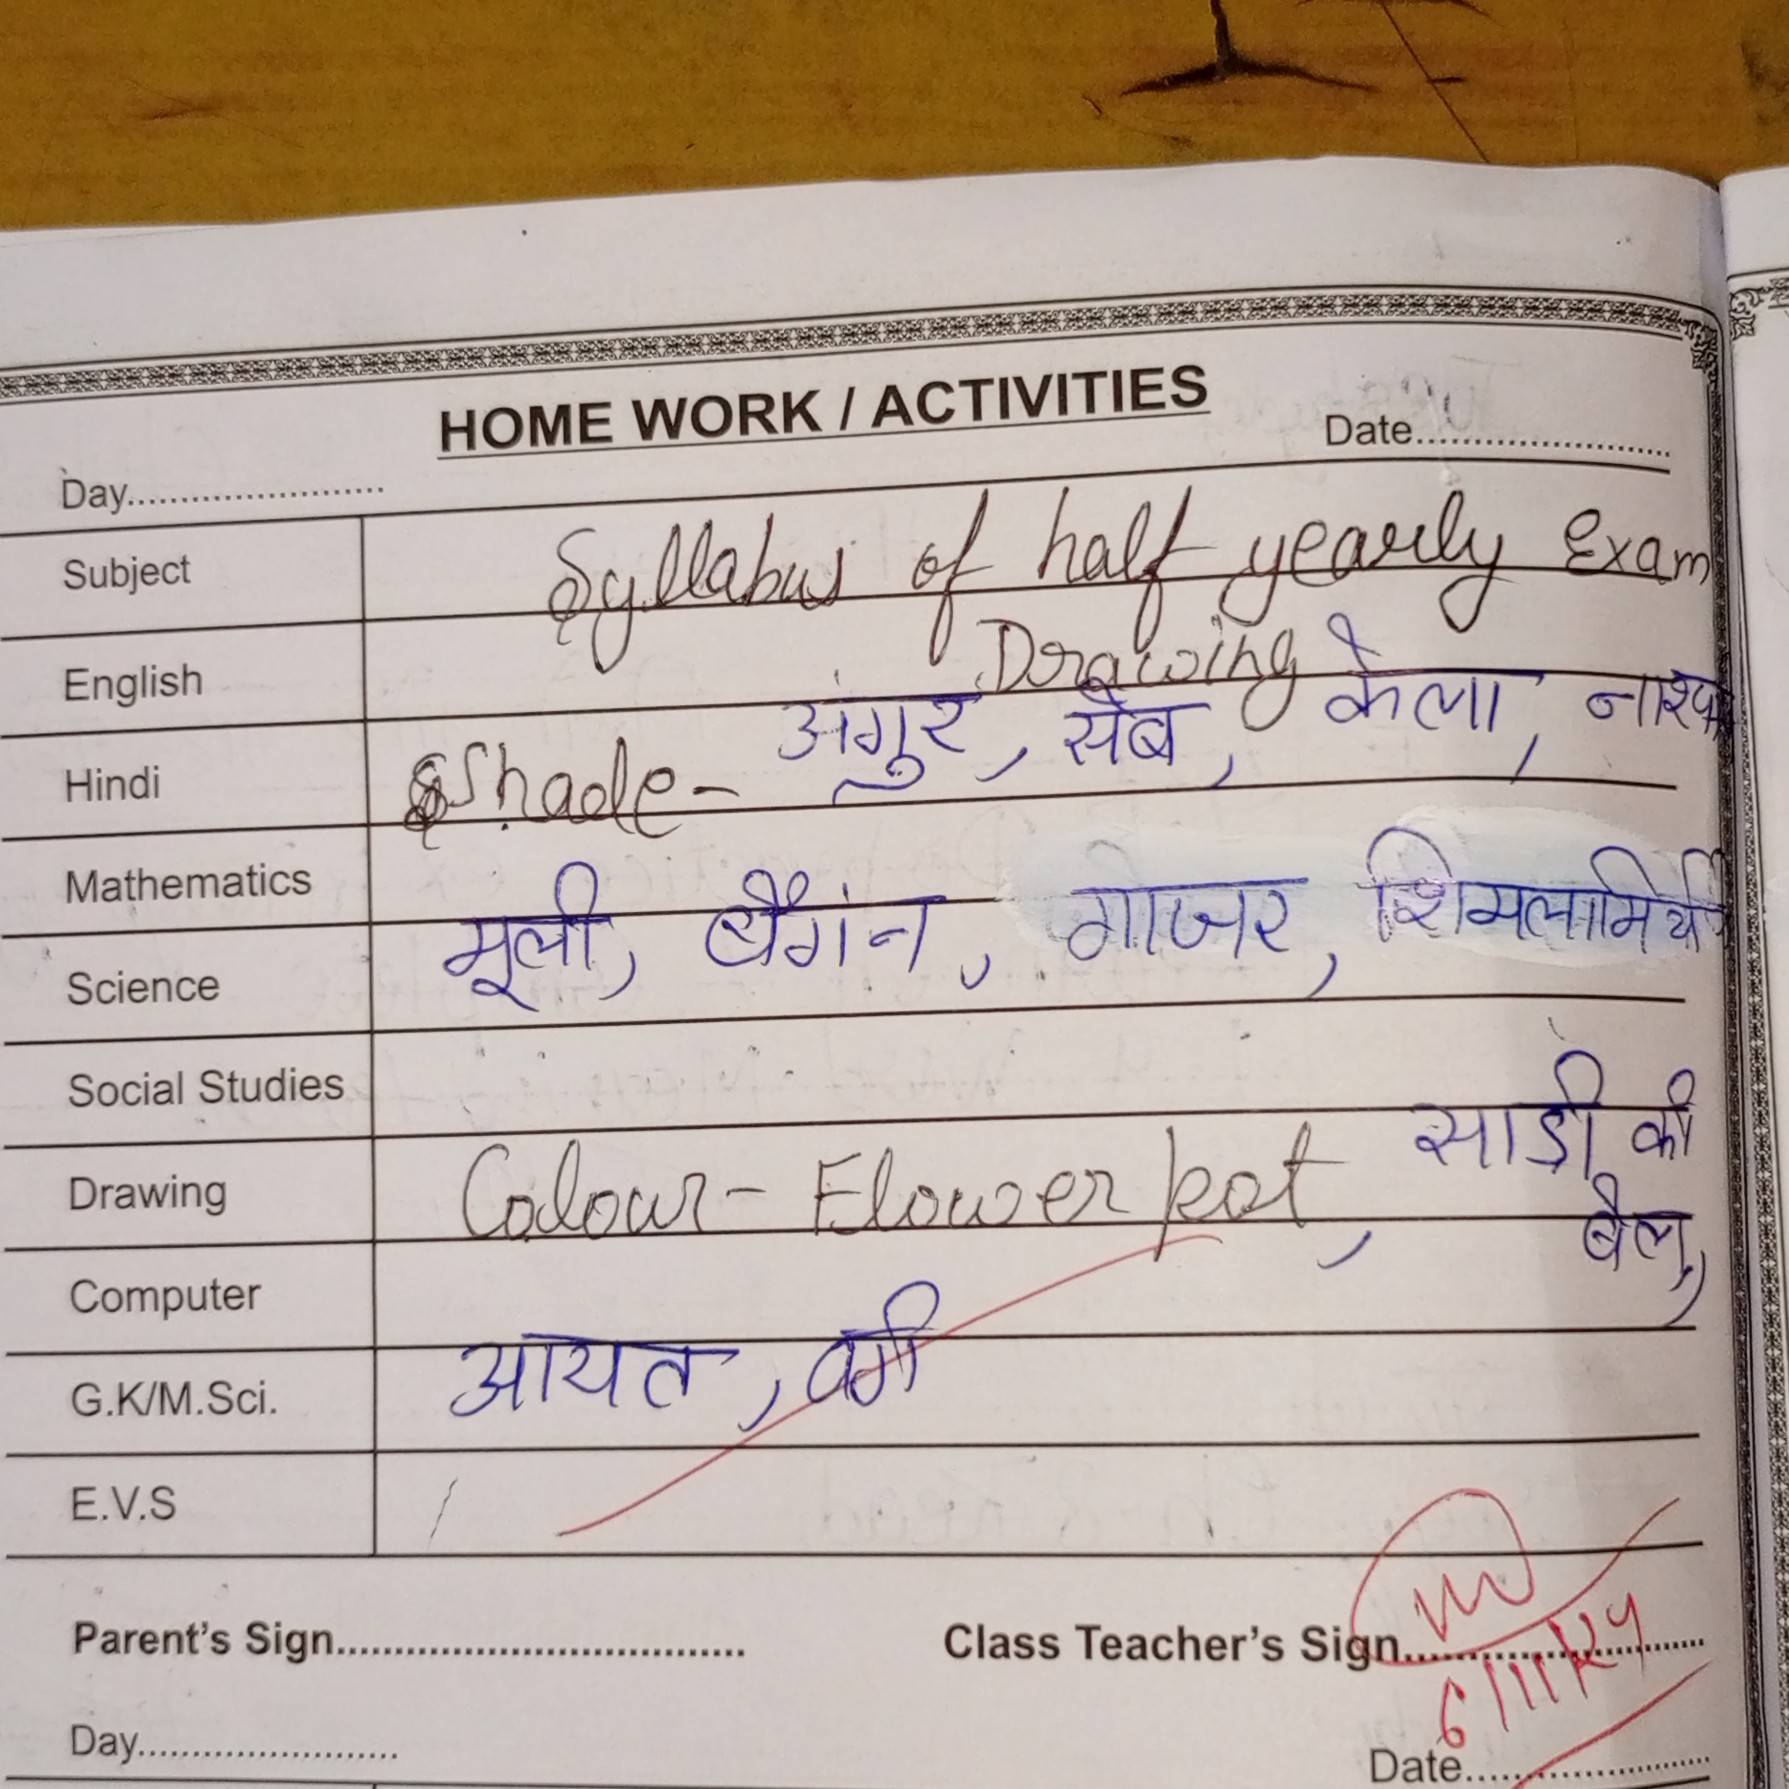 HOME WORK / ACTIVITIES
Day........................ Date........................
Subject Syllabus of half yearly Exam
English Drawing
Hindi Shade- अंगुर, सेब, केला,
Mathematics
Science मूली, बैंगंन, गाजर,
Social Studies
Drawing Colour- Flower pot, साड़ी की
बेल,
Computer
G.K/M.Sci. आयत, वर्ग
E.V.S
Parent's Sign.................................... Class Teacher's Sign..........................
6/11/24
Day........................ Date........................